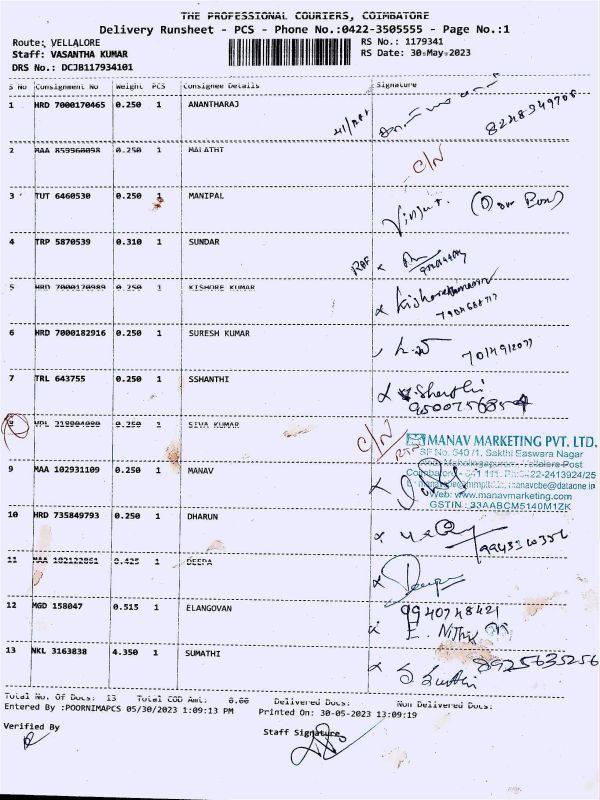 THE PROFESSIONAL COURIERS, COIMBATORE
Delivery Runsheet - PCS - Phone No.:0422-3505555 - Page No.:1
Route: VELLALORE RS No.: 1179341
Staff: VASANTHA KUMAR RS Date: 30-May-2023
DRS No.: DCJB117934101
S No Consignment No Weight PCS Consignee Details Signature
1 HRD 7000170465 0.250 1 ANANTHARAJ
2 MAA 859960098 0.250 1 MALATHI C/N
3 TUT 6460530 0.250 1 MANIPAL
4 TRP 5870539 0.310 1 SUNDAR
5 HRD 7000170989 0.250 1 KISHORE KUMAR
6 HRD 7000182916 0.250 1 SURESH KUMAR
7 TRL 643755 0.250 1 SSHANTHI
8 VPL 0.250 1 SIVA KUMAR C/N
MANAV MARKETING PVT. LTD.
SF No. 540 /1, Sakthi Easwara Nagar
Vellalore Post
0422-2413924/25
manavcbe@dataone.in
Web: www.manavmarketing.com
GSTIN : 33AABCM5140M1ZK
9 MAA 102931109 0.250 1 MANAV
10 HRD 735849793 0.250 1 DHARUN
11 MAA 102122861 0.425 1 DEEPA
12 MGD 158047 0.515 1 ELANGOVAN 9940748421
13 NKL 3163838 4.350 1 SUMATHI 8925635256
Total No. Of Docs: 13 Total COD Amt: 0.00 Delivered Docs: Non Delivered Docs:
Entered By :POORNIMAPCS 05/30/2023 1:09:13 PM Printed On: 30-05-2023 13:09:19
Verified By Staff Signature